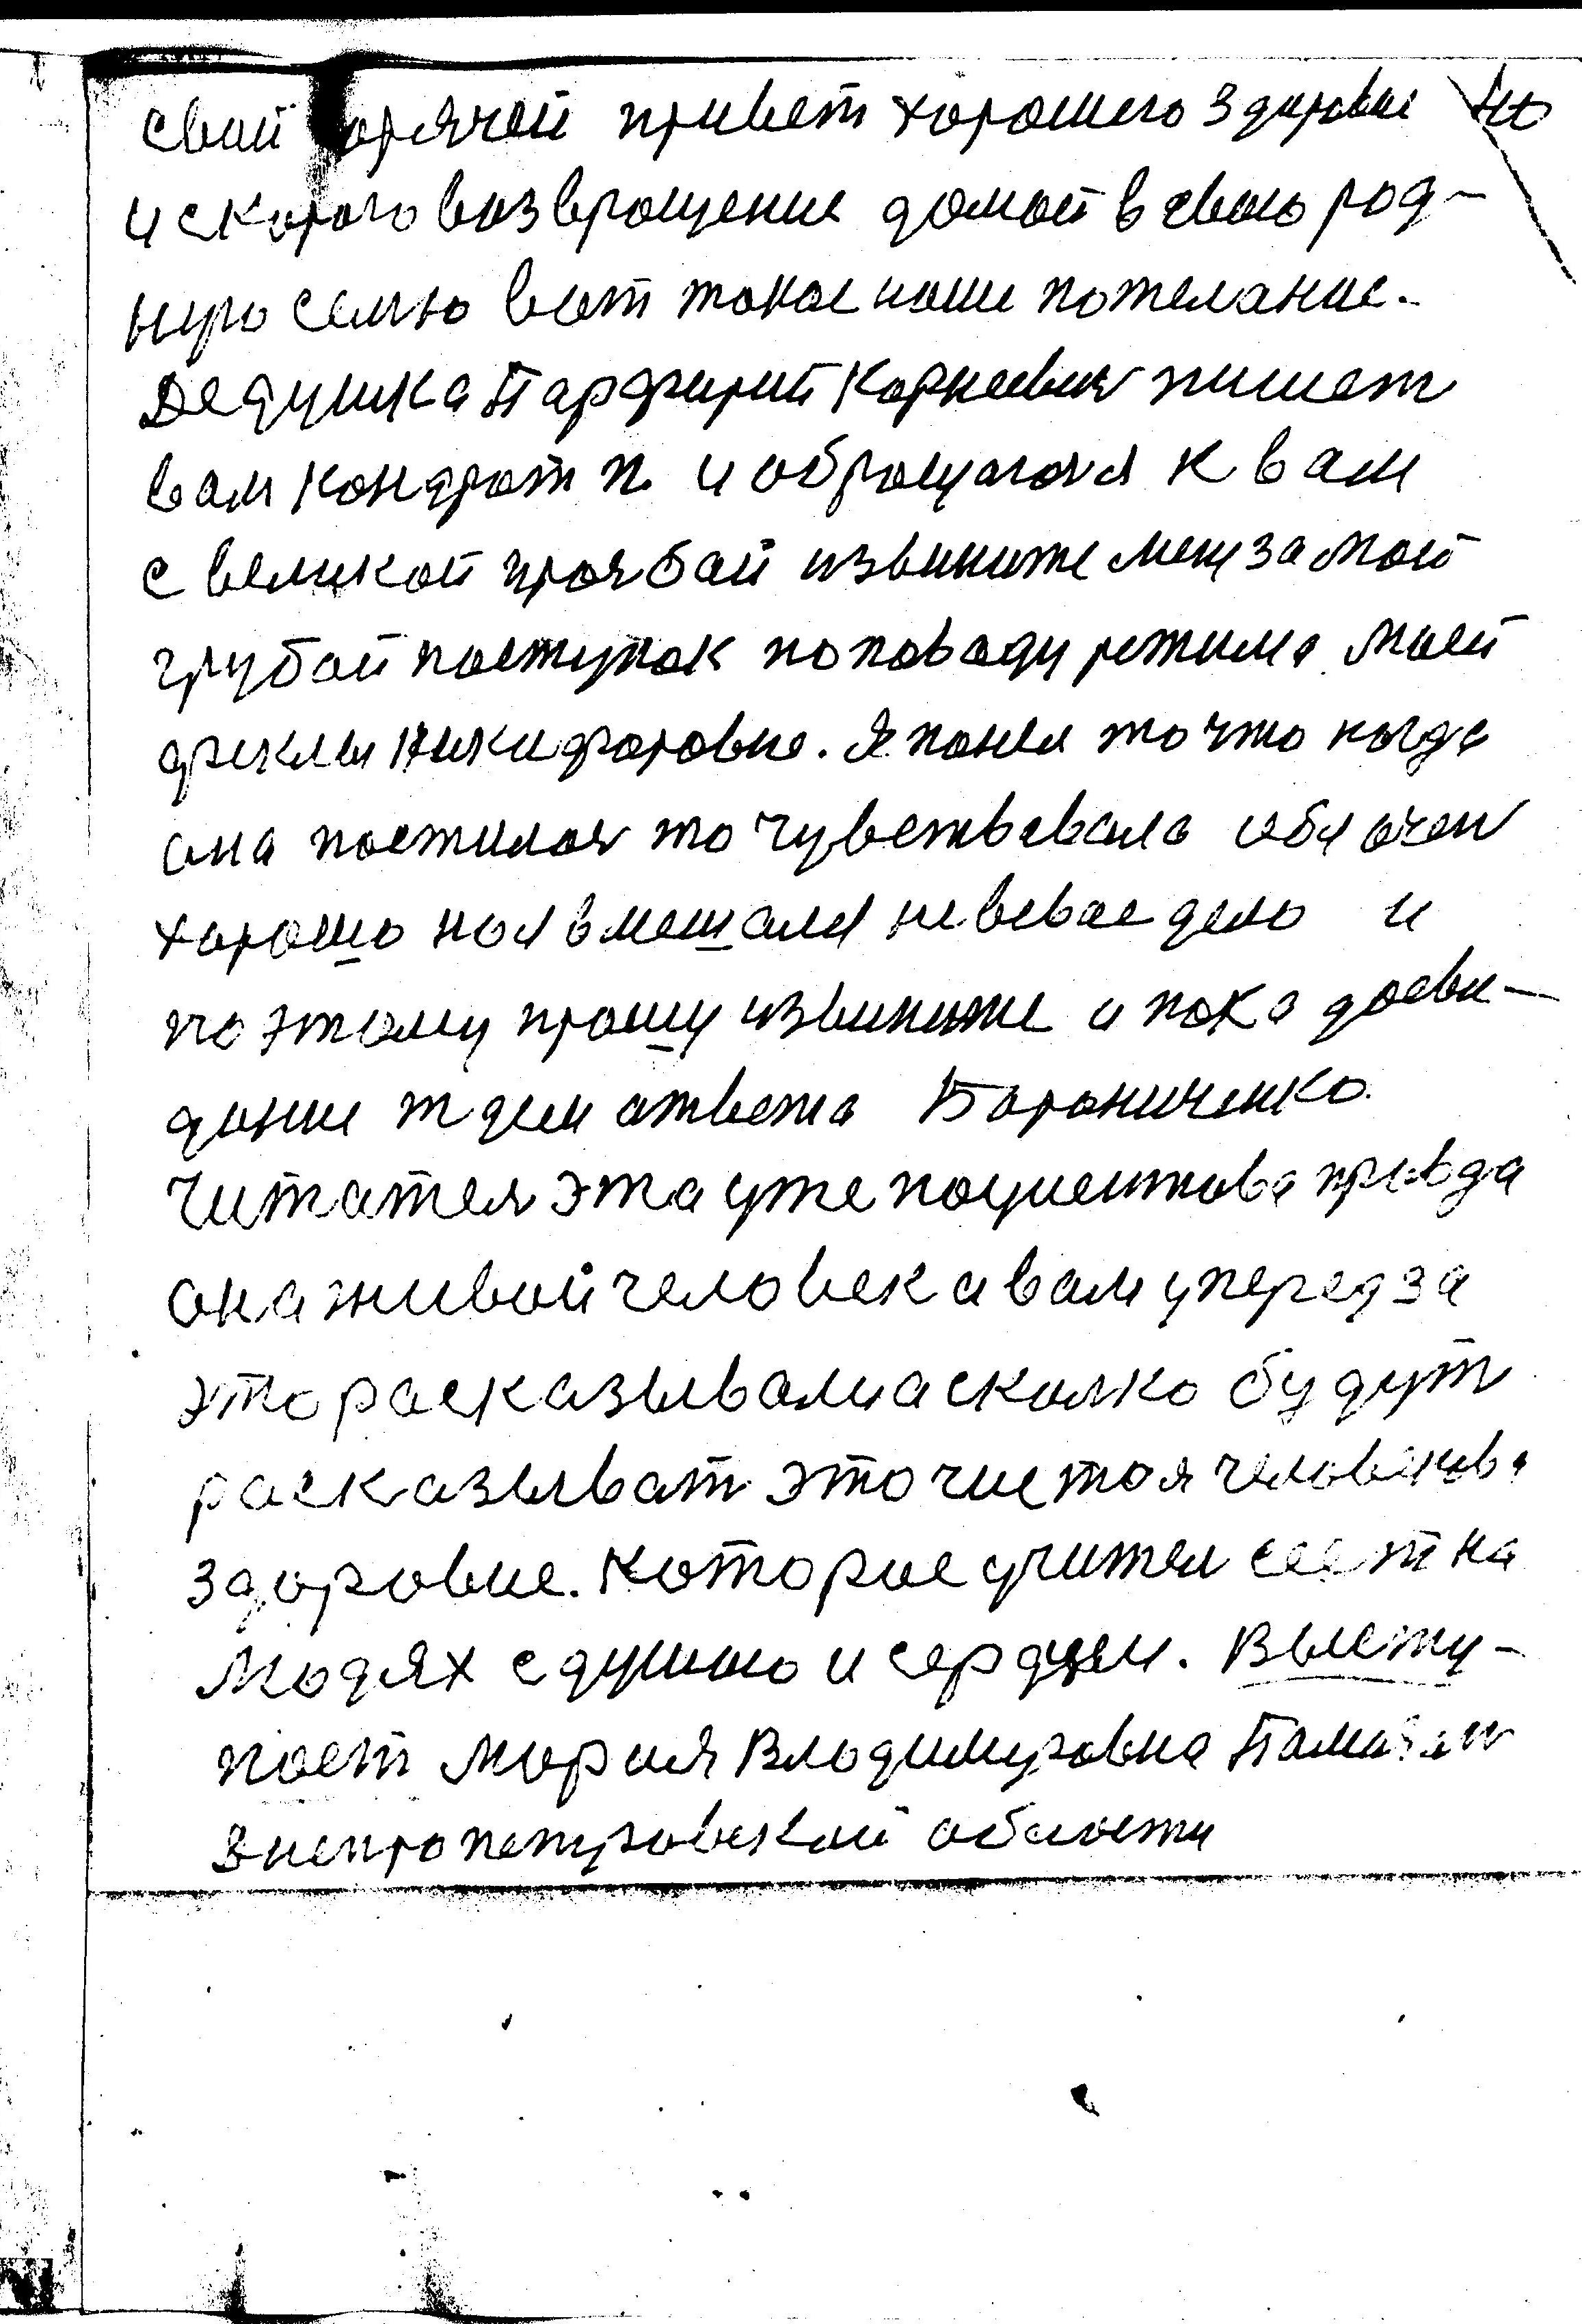 свой горячей привет хорошего здоровие 40
и скорого возвращение домой в свою род-
ную семью вот такое наше пожелание.
Дедушка Парфирий Корнеевич пишет
вам Кондрат п. и обращуюся к вам
с великой прозбой извините мену за мой
грубой поступок по поводу режима моей
феклы Никифоровне. Я понел то что когда
она постилас то чувствовала себя очен
хорошо но я вмешался не в свое дело и
по этому прошу извините и пока досви-
дание ждем ответа Борониченко.
Читател эта уже поцыенткова правда
она живой человек а вам уперед за
это росказывали а сколко будут
росказыват это чистоя человекова
здоровие. Которое учител сеет на
людях с душою и сердцем. Высту-
поет Мария Владимировна
Днепропетровской области